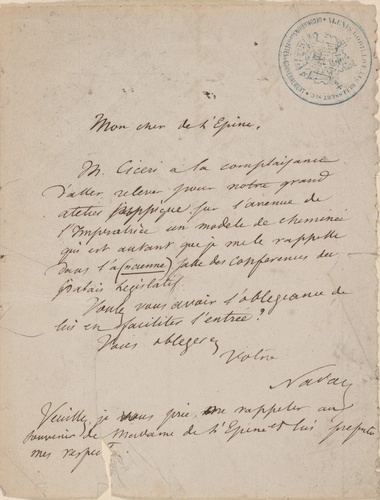 Mon cher de l'Epine,
M. Ciceri a la complaisance
d'aller relever pour notre grand
atelier sur l'avenue de
l'Impératrice un modèle de cheminée
qui est autant que je me le rappelle
dans l'a(ncienne) salle des Conférences du
Palais Législatif
Voulez vous avoir l'obligeance de
lui en faciliter l'entrée?
Vous obligerez
Votre
Nadar
Veuillez je vous prie me rappeler au
souvenir de Madame de l'Epine et lui présenter
mes respects.